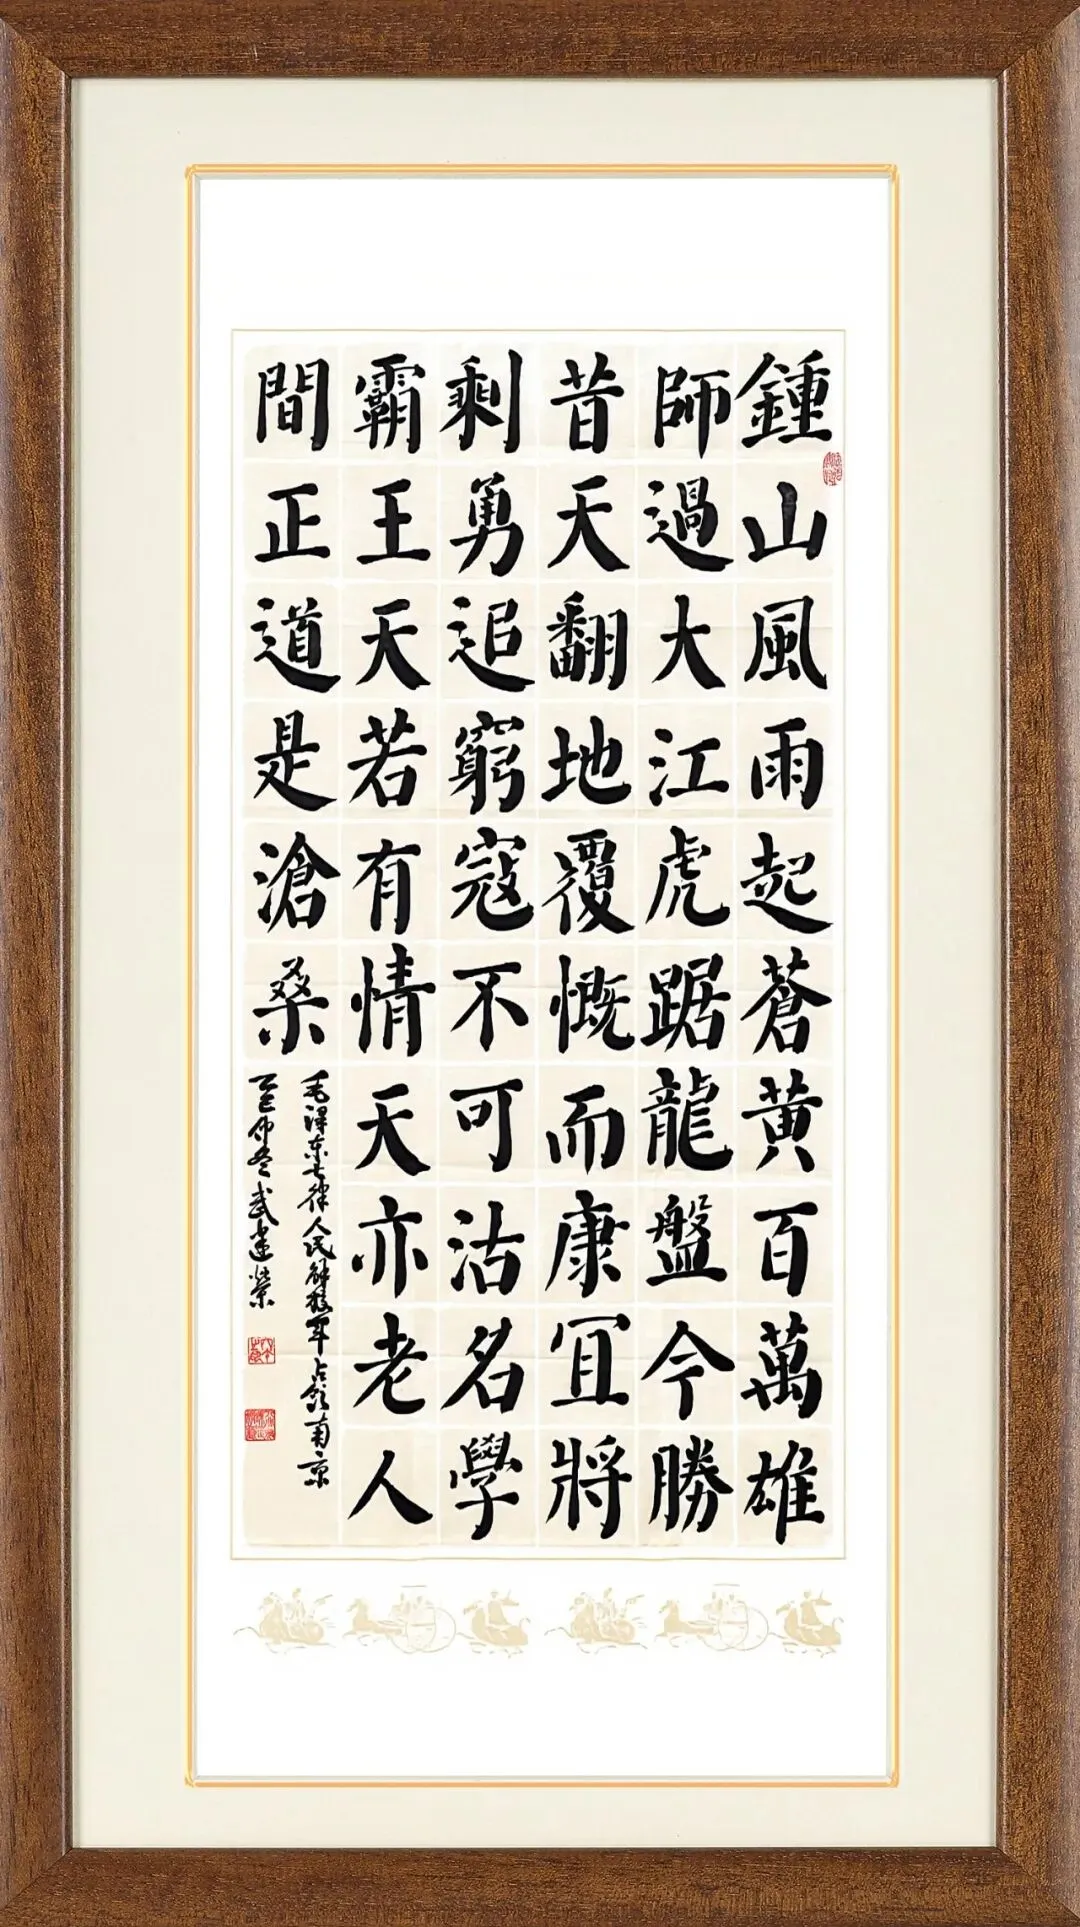 鍾山風雨起蒼黃百萬雄
師過大江虎踞龍盤今勝
昔天翻地覆慨而康宜將
剩勇追窮寇不可沽名學
霸王天若有情天亦老人
間正道是滄桑
毛泽东七律人民解放军占领南京
乙巳仲冬武建榮